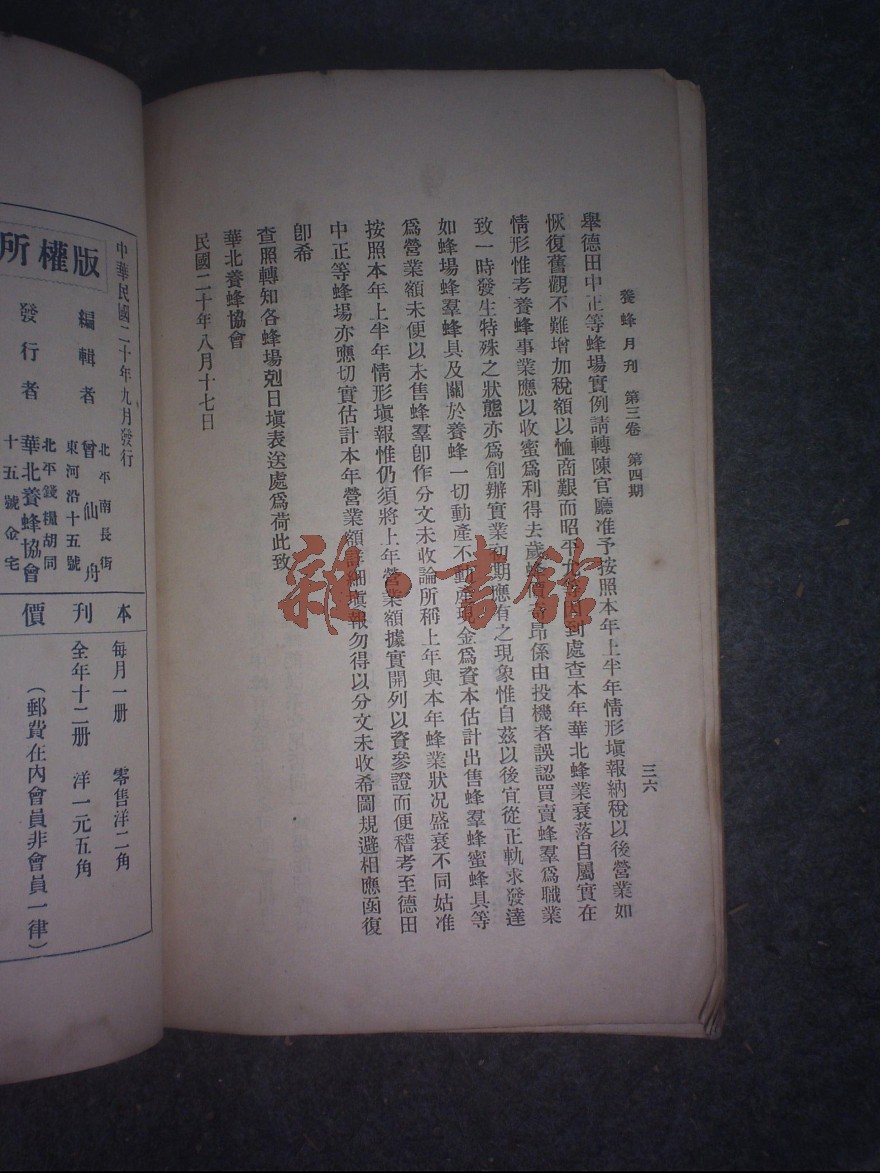 養蜂月刊 第三卷 第四期
三六
舉德田中正等蜂場實例請轉陳官廳准予按照本年上半年情形塡報納稅以後營業如
恢復舊觀不難增加稅額以恤商艱而昭平允等因到處查本年華北蜂業衰落自屬實在
情形惟考養蜂事業應以收蜜爲利得去歲蜂價奇昂係由投機者誤認買賣蜂羣爲職業
致一時發生特殊之狀態亦爲創辦實業初期應有之現象惟自茲以後宜從正軌求發達
如蜂場蜂羣蜂具及關於養蜂一切動產不動產現金爲資本估計出售蜂羣蜂蜜蜂具等
爲營業額未便以未售蜂羣卽作分文未收論所稱上年與本年蜂業狀況盛衰不同姑准
按照本年上半年情形塡報惟仍須將上年營業額據實開列以資參證而便稽考至德田
中正等蜂場亦應切實估計本年營業額詳細塡報勿得以分文未收希圖規避相應函復
卽希
查照轉知各蜂場剋日塡表送處爲荷此致
華北養蜂協會
民國二十年八月十七日
雜·書館
中華民國二十年九月發行
版權所
編輯者 曾仙舟
北平南長街
東河沿十五號
發行者 華北養蜂協會
北平錢糧胡同
十五號金宅
本刊價
每月一册 零售洋二角
全年十二册 洋一元五角
（郵費在內會員非會員一律）